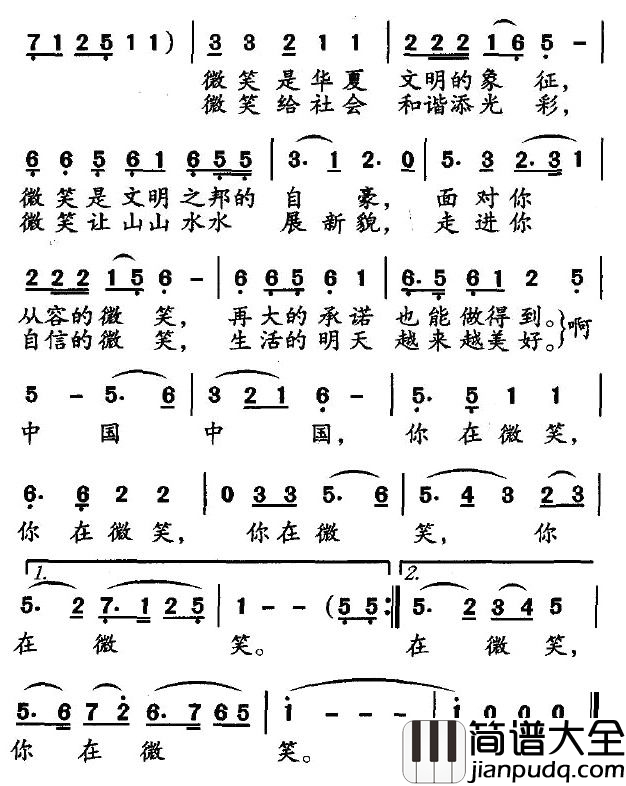 7 1 2 5 1 1 ) | 3 3 2 1 1 | 2 2 2 2 1 6 5 - |
微 笑 是 华 夏 文 明 的 象 征,
微 笑 给 社 会 和 谐 添 光 彩,
6 6 5 6 1 6 5 5 | 3. 1 2. 0 | 5. 3 2. 3 1 |
微 笑 是 文 明 之 邦 的 自 豪, 面 对 你
微 笑 让 山 山 水 水 展 新 貌, 走 进 你
2 2 2 1 5 6 - | 6 6 5 6 1 | 6. 5 6 1 2 5 |
从 容 的 微 笑, 再 大 的 承 诺 也 能 做 得 到。} 啊
自 信 的 微 笑, 生 活 的 明 天 越 来 越 美 好。}
5 - 5. 6 | 3 2 1 6 - | 5. 5 1 1 |
中 国 中 国, 你 在 微 笑,
6. 6 2 2 | 0 3 3 5. 6 | 5. 4 3 2 3 |
你 在 微 笑, 你 在 微 笑, 你
1. 2.
5. 2 7. 1 2 5 | 1 - - ( 5 5 :‖ 5. 2 3 4 5 |
在 微 笑。 在 微 笑,
5. 6 7 2 6. 7 6 5 | i - - - | i 0 0 0 ‖
你 在 微 笑。
简谱大全
jianpudq.com